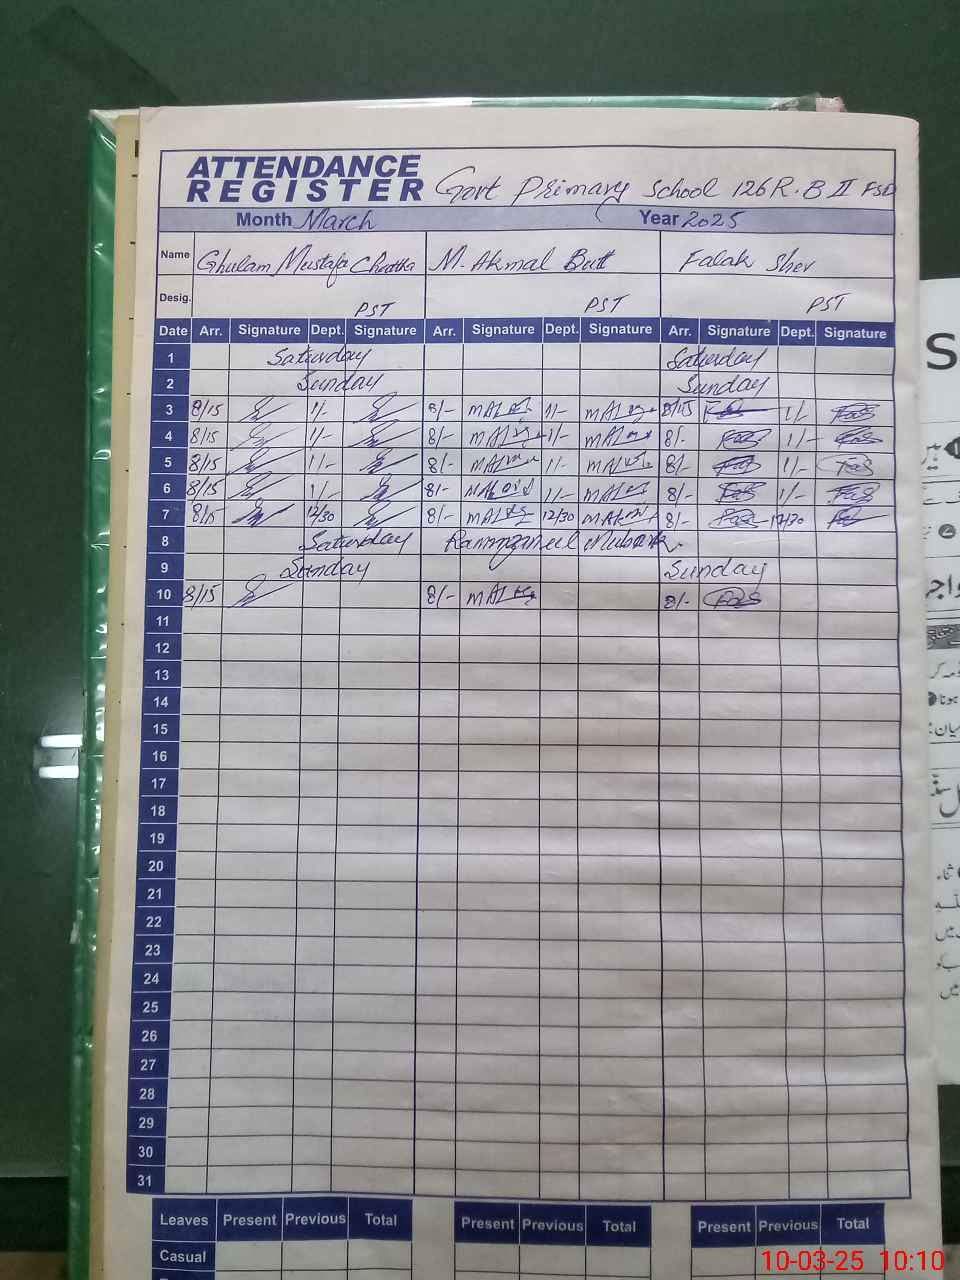 ATTENDANCE REGISTER Govt Primary School 126 R.B II FSD
Month March Year 2025
Name Ghulam Mustafa Chattha M. Akmal Butt Falak Sher
Desig. PST PST PST
Date Arr. Signature Dept. Signature Arr. Signature Dept. Signature Arr. Signature Dept. Signature
1 Saturday Saturday
2 Sunday Sunday
3 8/15 1/- 8/- 1/- 8/15 1/-
4 8/15 1/- 8/- 1/- 8/- 1/-
5 8/15 1/- 8/- 1/- 8/- 1/-
6 8/15 1/- 8/- 1/- 8/- 1/-
7 8/15 12/30 8/- 12/30 8/- 12/30
8 Saturday
9 Sunday Sunday
10 8/15 8/- 8/-
11
12
13
14
15
16
17
18
19
20
21
22
23
24
25
26
27
28
29
30
31
Leaves Present Previous Total Present Previous Total Present Previous Total
Casual
10-03-25 10:10